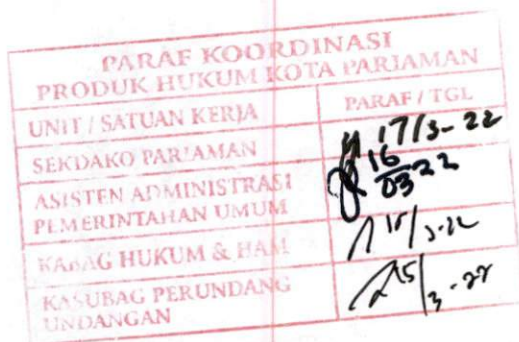 PARAF KOORDINASI
PRODUK HUKUM KOTA PARIAMAN
UNIT / SATUAN KERJA PARAF / TGL
SEKDAKO PARIAMAN 17/3-22
ASISTEN ADMINISTRASI
PEMERINTAHAN UMUM 16/03 22
KABAG HUKUM & HAM 15/3-22
KASUBAG PERUNDANG
UNDANGAN 15/3-22